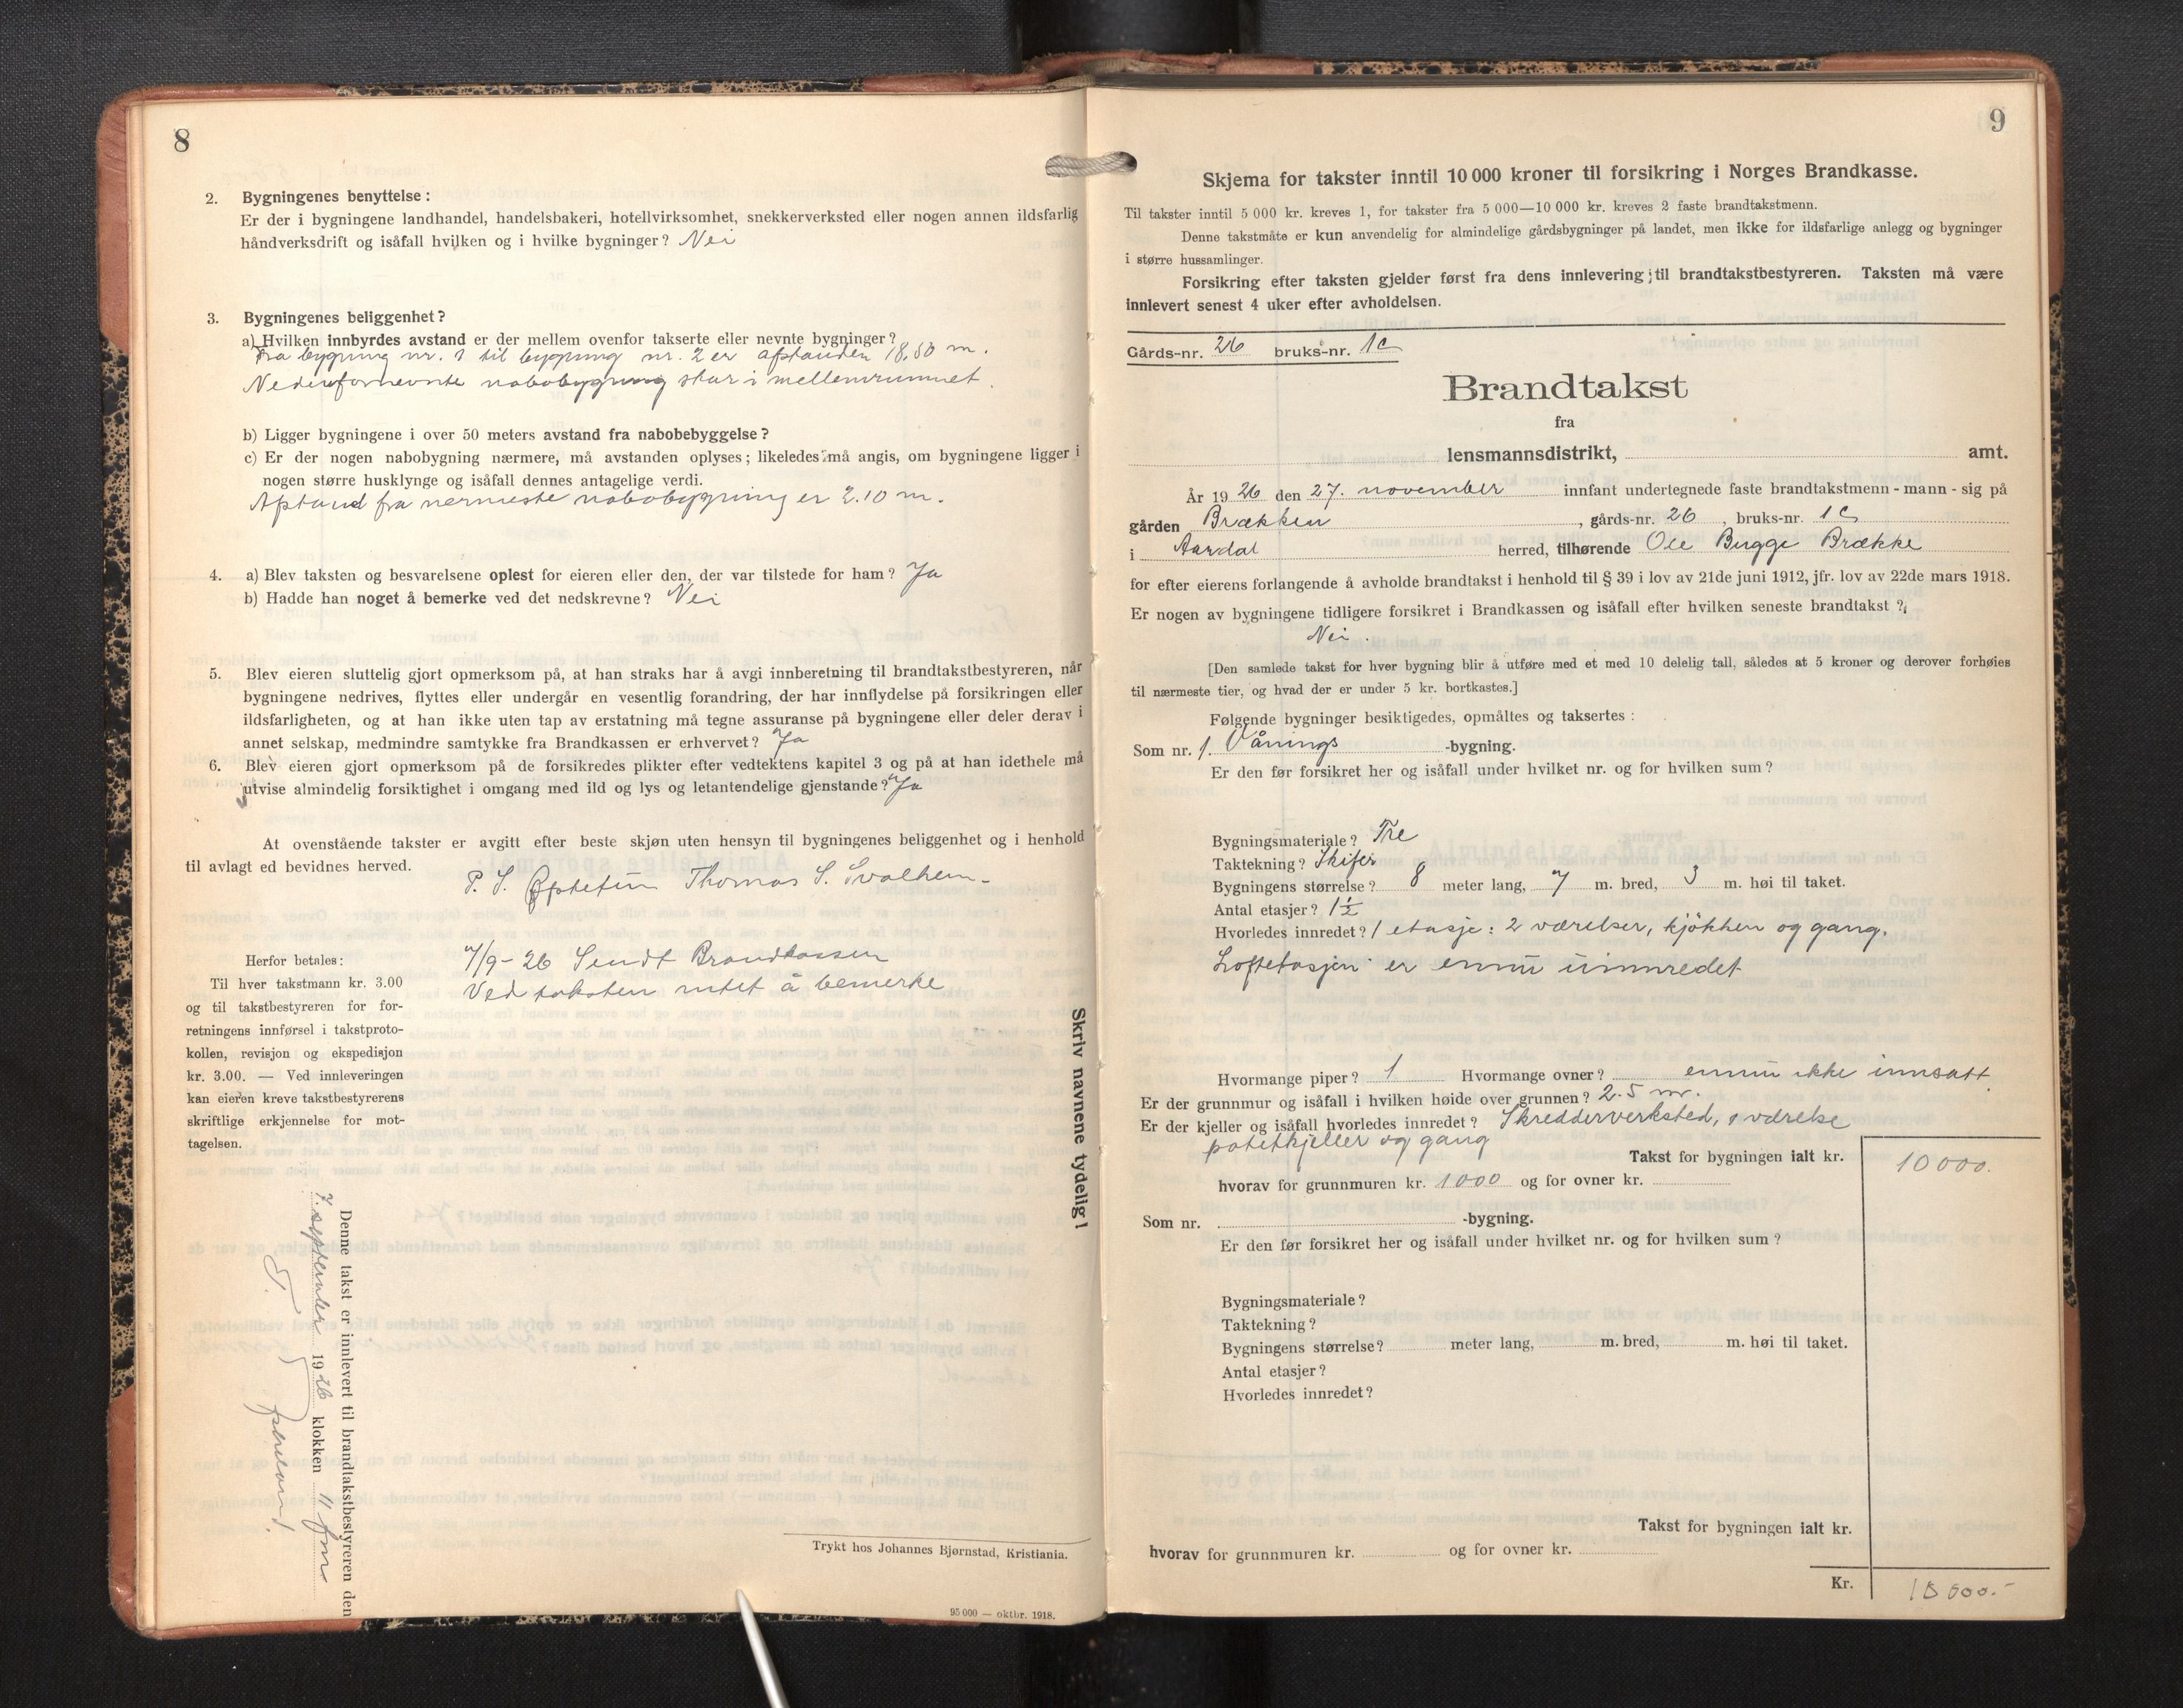 8
2. Bygningenes benyttelse:
Er der i bygningene landhandel, handelsbakeri, hotellvirksomhet, snekkerverksted eller nogen annen ildsfarlig
håndverksdrift og isåfall hvilken og i hvilke bygninger? Nei
3. Bygningenes beliggenhet?
a) Hvilken innbyrdes avstand er der mellem ovenfor takserte eller nevnte bygninger?
Fra bygning nr. 1 til bygning nr. 2 er afstanden 18,50 m.
Nedenfornevnte nabobygning star i mellemrummet.
b) Ligger bygningene i over 50 meters avstand fra nabobebyggelse?
c) Er der nogen nabobygning nærmere, må avstanden oplyses; likeledes må angis, om bygningene ligger i
nogen større husklynge og isåfall dennes antagelige verdi.
Afstand fra nærmeste nabobygning er 2.10 m.
4. a) Blev taksten og besvarelsene oplest for eieren eller den, der var tilstede for ham? Ja
b) Hadde han noget å bemerke ved det nedskrevne? Nei
5. Blev eieren sluttelig gjort opmerksom på, at han straks har å avgi innberetning til brandtakstbestyreren, når
bygningene nedrives, flyttes eller undergår en vesentlig forandring, der har innflydelse på forsikringen eller
ildsfarligheten, og at han ikke uten tap av erstatning må tegne assuranse på bygningene eller deler derav i
annet selskap, medmindre samtykke fra Brandkassen er erhvervet? Ja
6. Blev eieren gjort opmerksom på de forsikredes plikter efter vedtektens kapitel 3 og på at han idethele må
utvise almindelig forsiktighet i omgang med ild og lys og letantendelige gjenstande? Ja
At ovenstående takster er avgitt efter beste skjøn uten hensyn til bygningenes beliggenhet og i henhold
til avlagt ed bevidnes herved.
P. S. Thomas S. Svalhem
7/9-26 Sendt Brandkassen
Ved taksten intet å bemerke
Herfor betales:
Til hver takstmann kr. 3.00
og til takstbestyreren for for-
retningens innførsel i takstproto-
kollen, revisjon og ekspedisjon
kr. 3.00. — Ved innleveringen
kan eieren kreve takstbestyrerens
skriftlige erkjennelse for mot-
tagelsen.
Skriv navnene tydelig!
Denne takst er innlevert til brandtakstbestyreren den
7. september 1926 klokken 11 fm
Trykt hos Johannes Bjørnstad, Kristiania.
95 000 — oktbr. 1918.
9
Skjema for takster inntil 10 000 kroner til forsikring i Norges Brandkasse.
Til takster inntil 5 000 kr. kreves 1, for takster fra 5 000—10 000 kr. kreves 2 faste brandtakstmenn.
Denne takstmåte er kun anvendelig for almindelige gårdsbygninger på landet, men ikke for ildsfarlige anlegg og bygninger
i større hussamlinger.
Forsikring efter taksten gjelder først fra dens innlevering til brandtakstbestyreren. Taksten må være
innlevert senest 4 uker efter avholdelsen.
Gårds-nr. 26 bruks-nr. 1c
Brandtakst
fra
lensmannsdistrikt, amt.
År 1926 den 27. november innfant undertegnede faste brandtakstmenn - mann - sig på
gården Brækken, gårds-nr. 26, bruks-nr. 1c
i Aardal herred, tilhørende Ole Bugge Brække
for efter eierens forlangende å avholde brandtakst i henhold til § 39 i lov av 21de juni 1912, jfr. lov av 22de mars 1918.
Er nogen av bygningene tidligere forsikret i Brandkassen og isåfall efter hvilken seneste brandtakst?
Nei.
[Den samlede takst for hver bygning blir å utføre med et med 10 delelig tall, således at 5 kroner og derover forhøies
til nærmeste tier, og hvad der er under 5 kr. bortkastes.]
Følgende bygninger besiktigedes, opmåltes og taksertes:
Som nr. 1. Vånings -bygning.
Er den før forsikret her og isåfall under hvilket nr. og for hvilken sum?
Bygningsmateriale? Tre
Taktekning? Skifer
Bygningens størrelse? 8 meter lang, 7 m. bred, 3 m. høi til taket.
Antal etasjer? 1½
Hvorledes innredet? 1 etasje: 2 værelser, kjøkken og gang.
Loftetasjen er ennu uinnredet
Hvormange piper? 1 Hvormange ovner? ennu ikke innsatt.
Er der grunnmur og isåfall i hvilken høide over grunnen? 2.5 m.
Er der kjeller og isåfall hvorledes innredet? Skredderverksted, 1 værelse
potetkjeller og gang
Takst for bygningen ialt kr. 10 000.
hvorav for grunnmuren kr. 1000 og for ovner kr.
Som nr. -bygning.
Er den før forsikret her og isåfall under hvilket nr. og for hvilken sum?
Bygningsmateriale?
Taktekning?
Bygningens størrelse? meter lang, m. bred, m. høi til taket.
Antal etasjer?
Hvorledes innredet?
Takst for bygningen ialt kr.
hvorav for grunnmuren kr. og for ovner kr.
Kr. 10 000.-